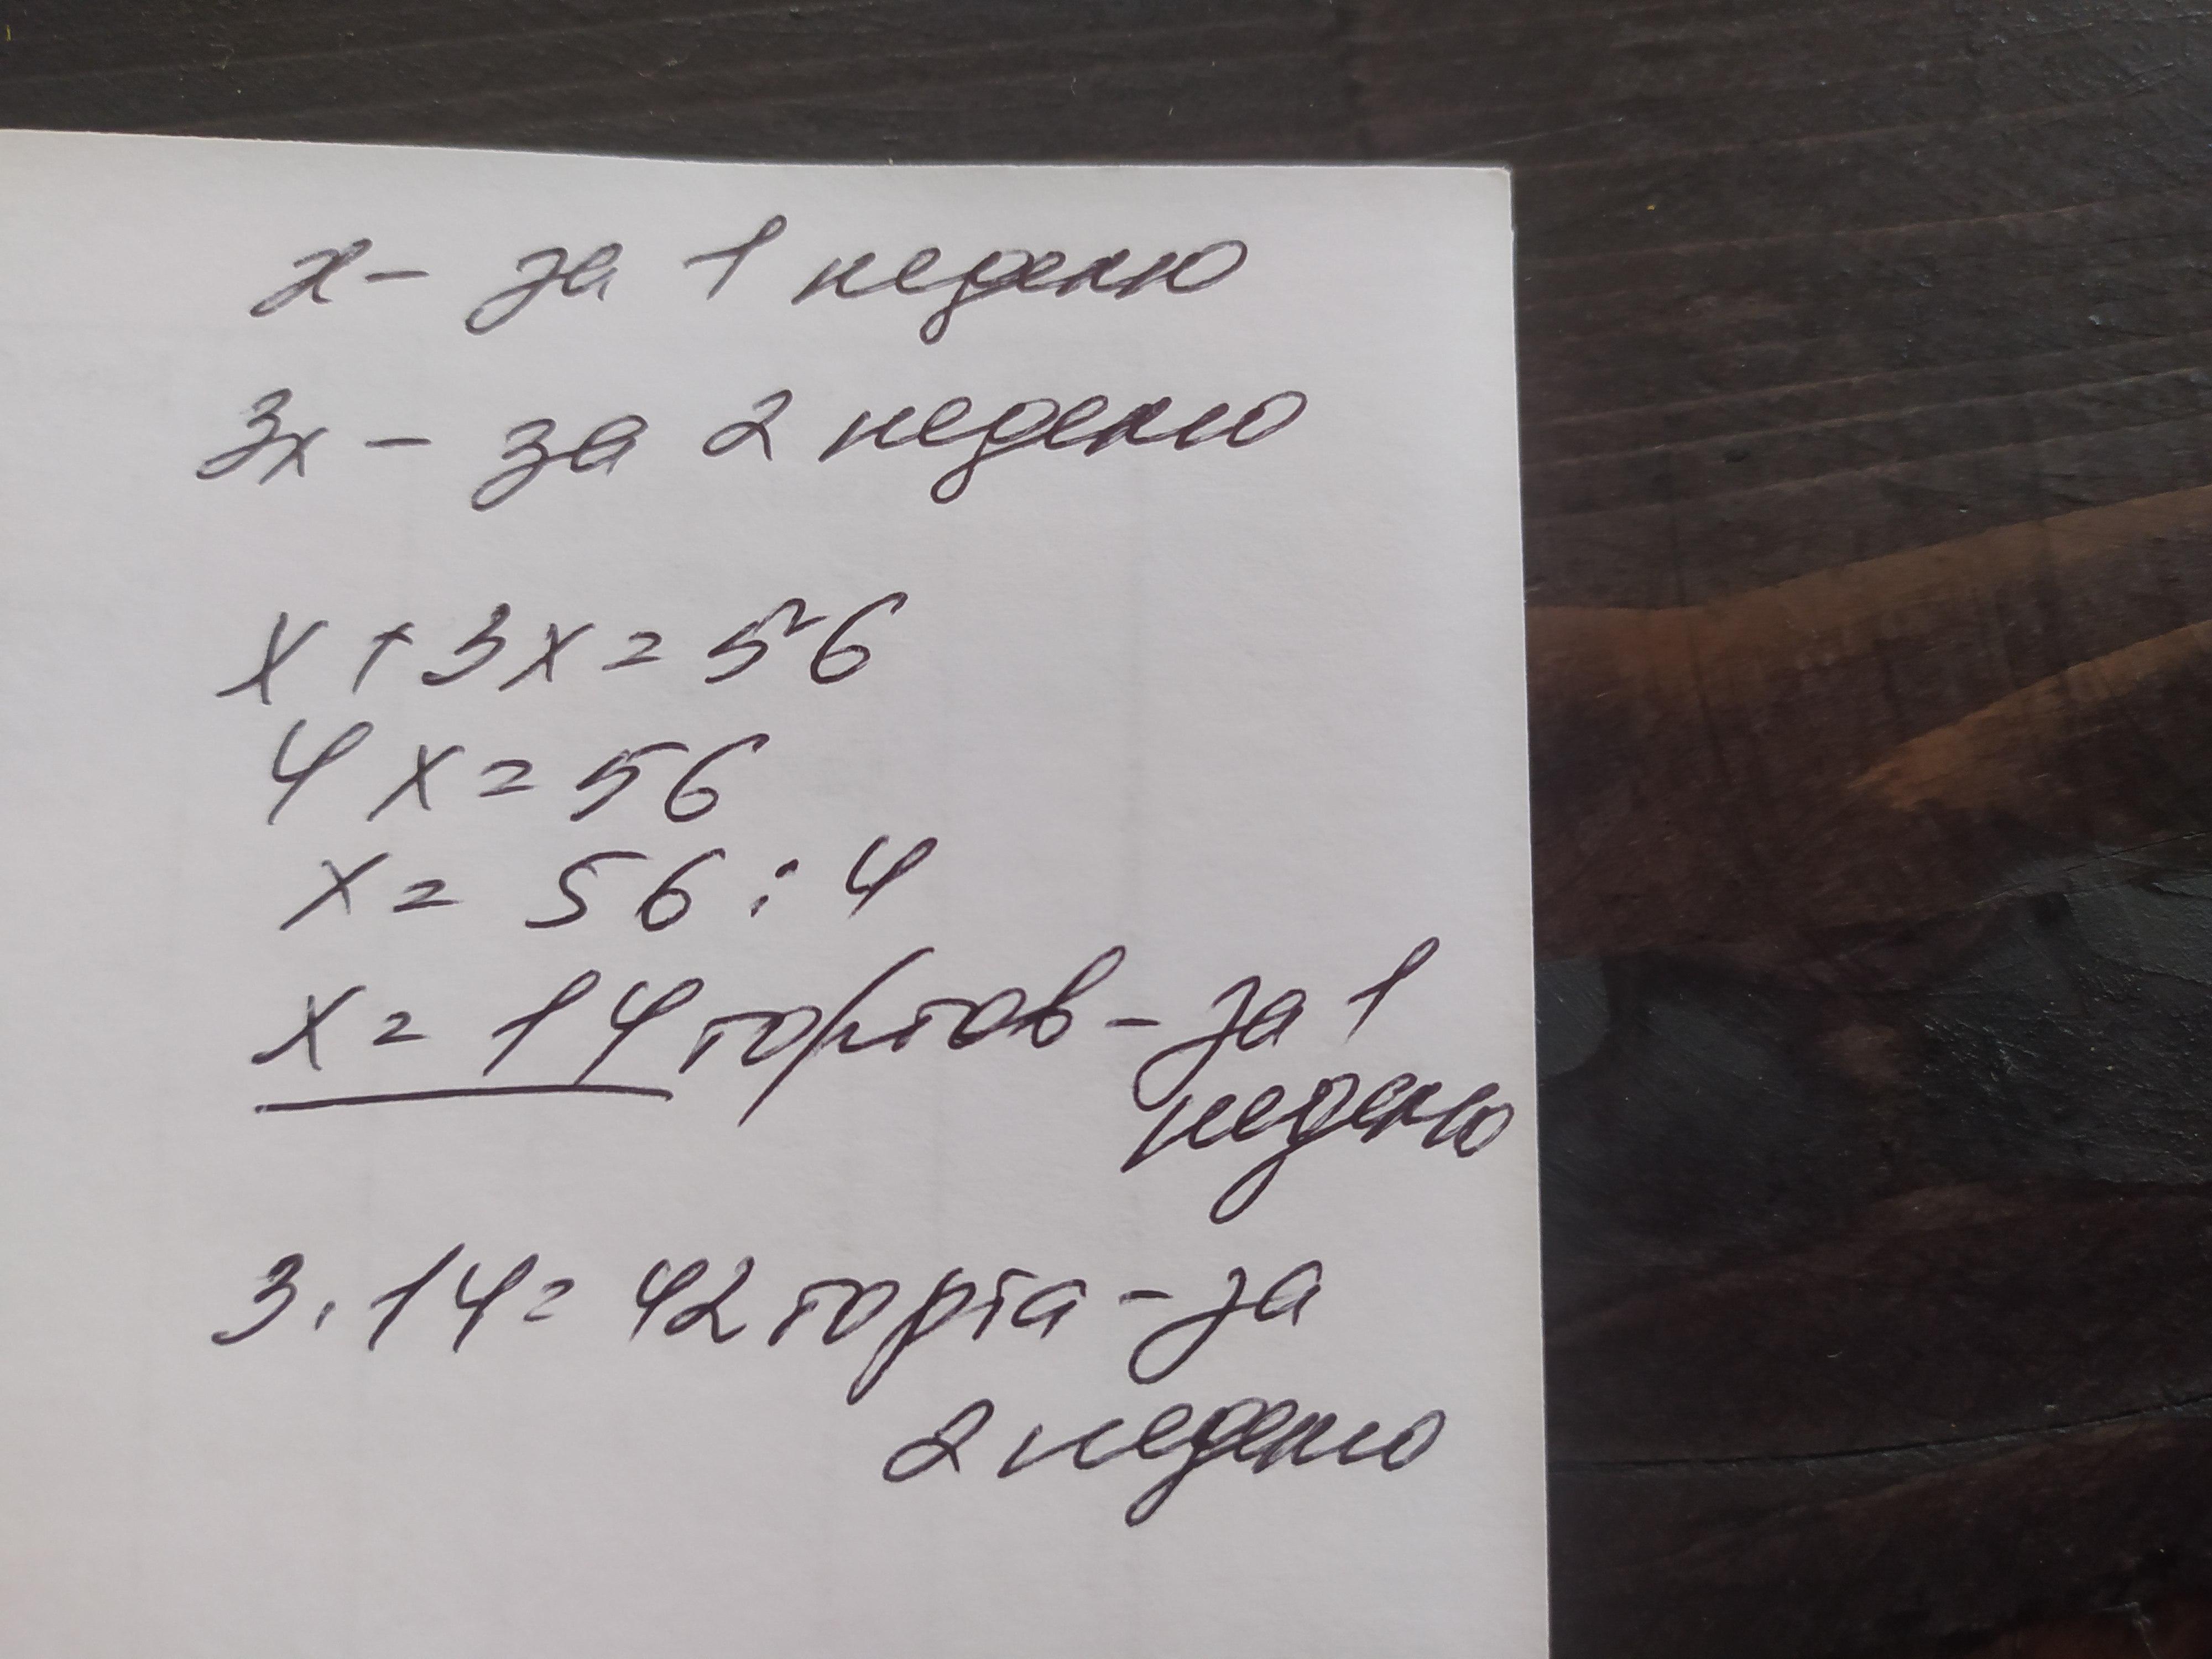 x - за 1 неделю
3x - за 2 неделю
x + 3x = 56
4x = 56
x = 56 : 4
x = 14 тортов - за 1
неделю
3 · 14 = 42 торта - за
2 неделю